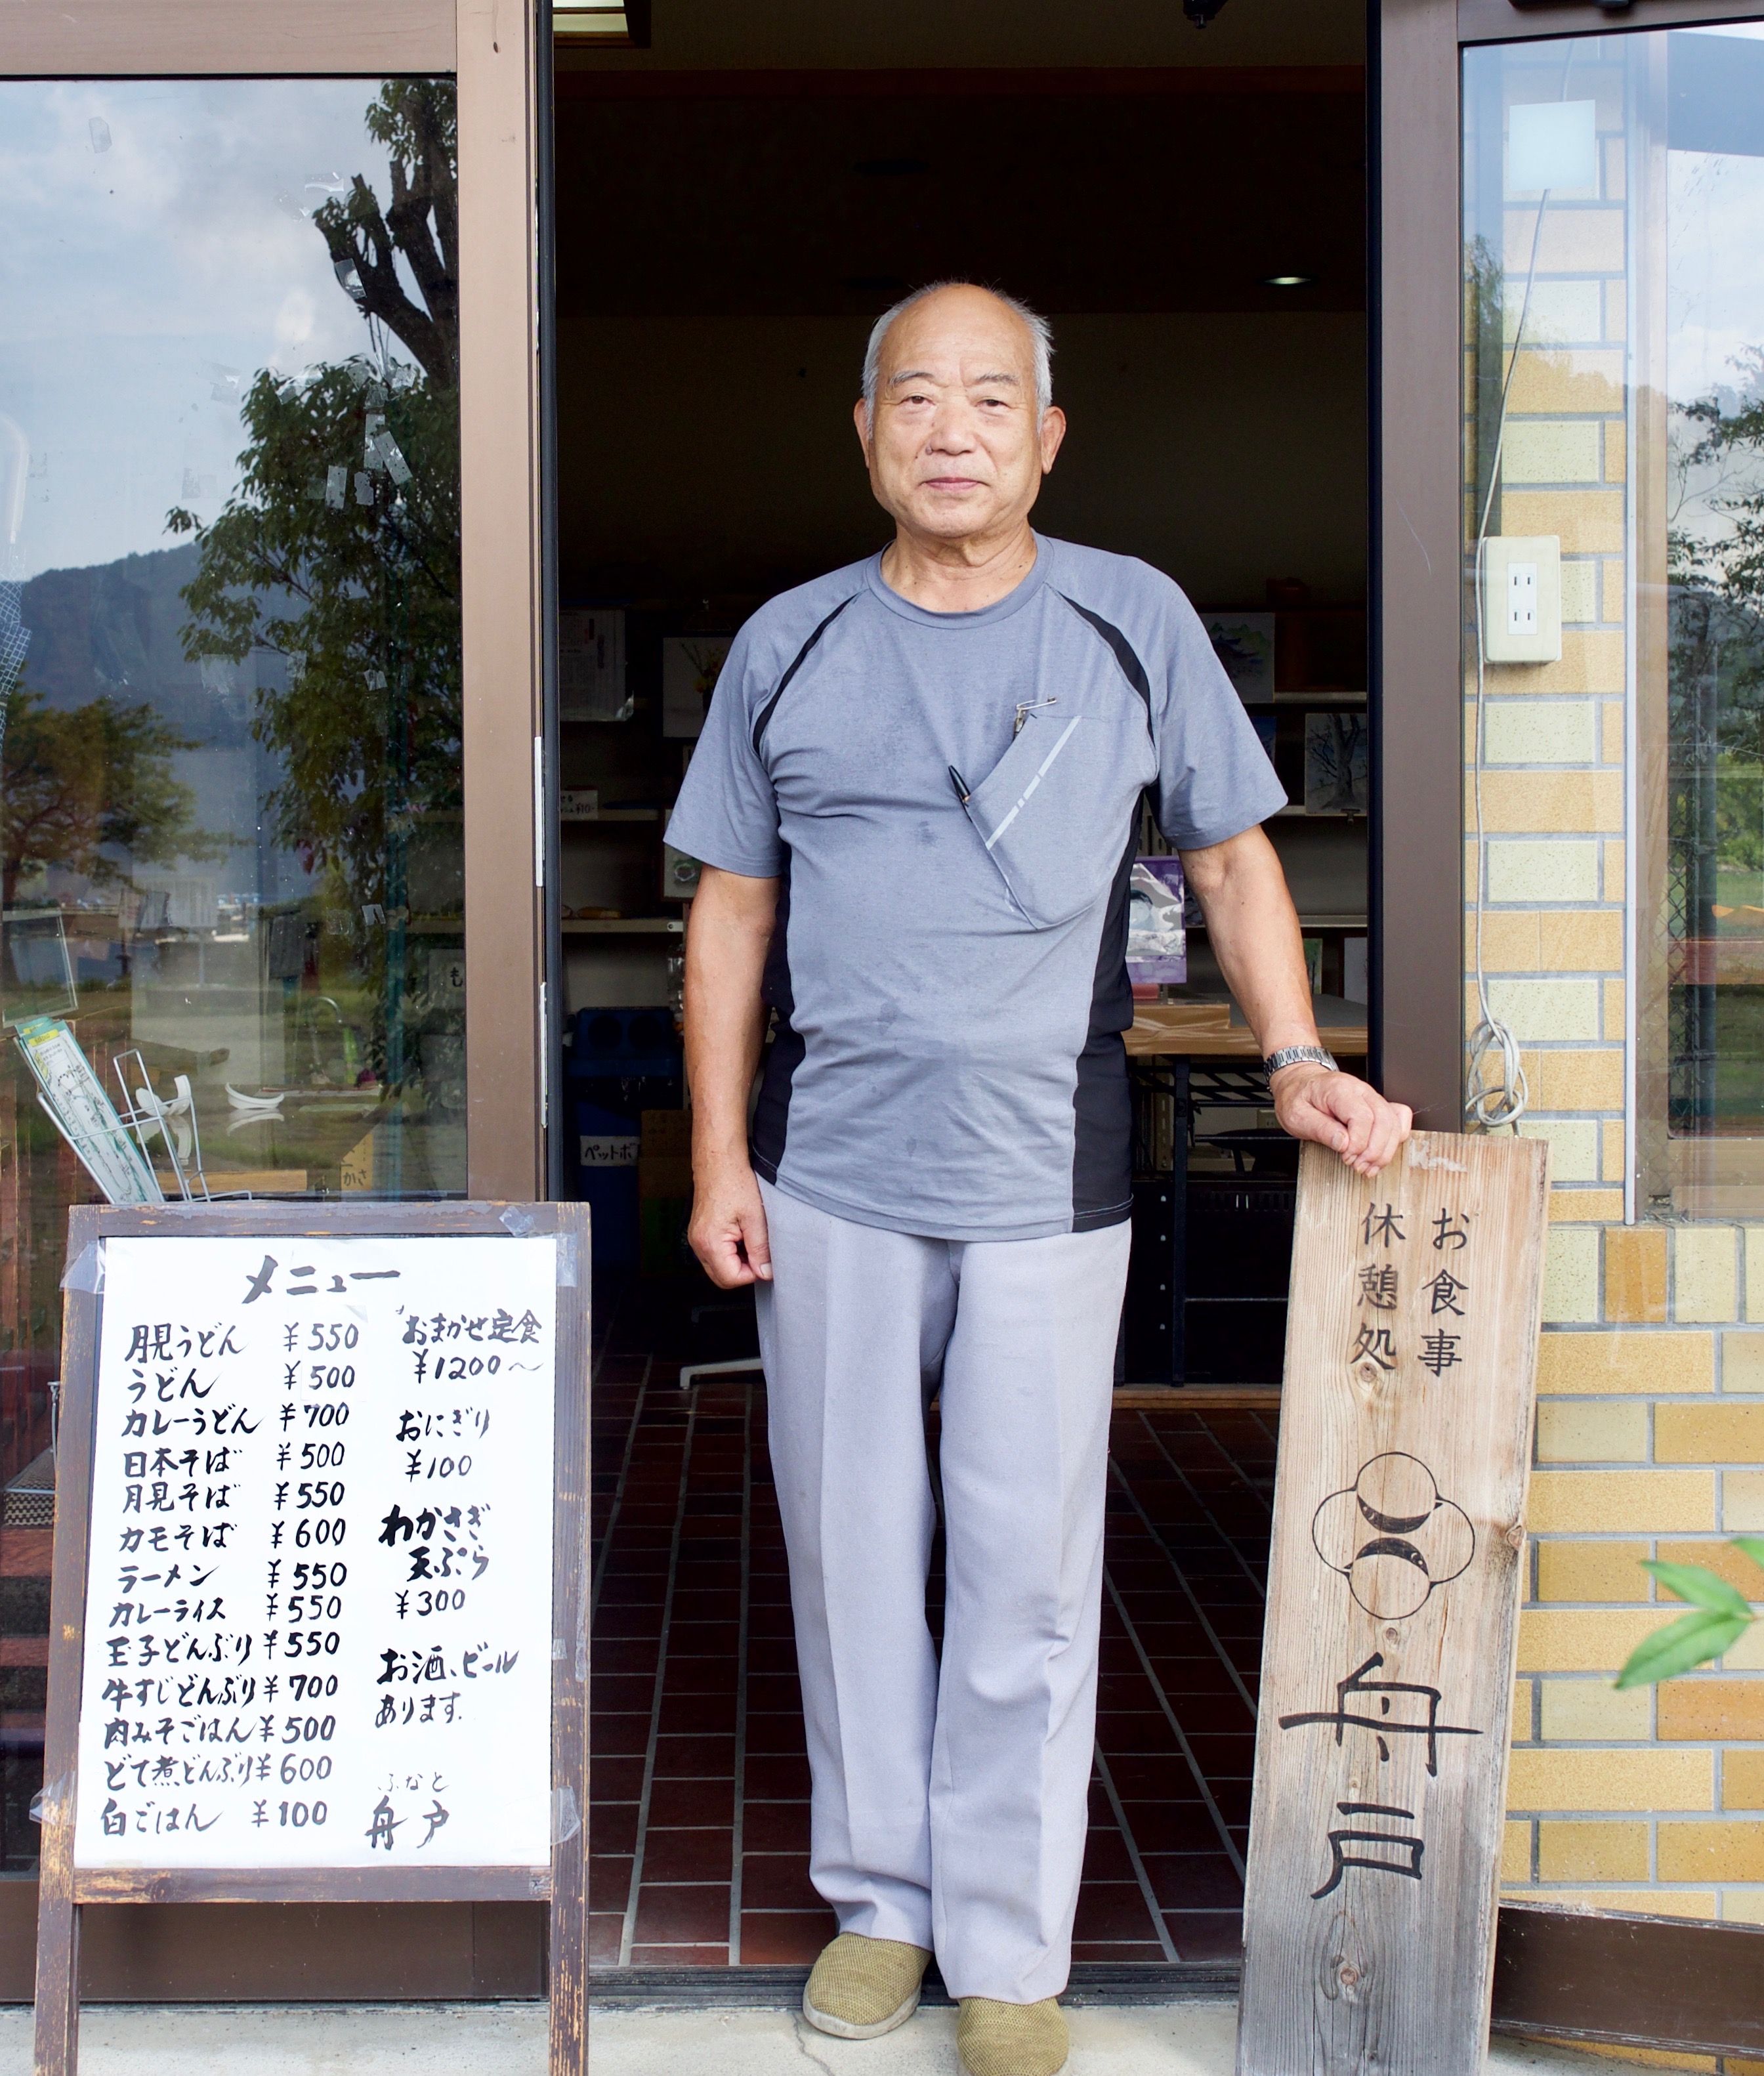 メニュー
月見うどん ¥550
うどん ¥500
カレーうどん ¥700
日本そば ¥500
月見そば ¥550
カモそば ¥600
ラーメン ¥550
カレーライス ¥550
玉子どんぶり ¥550
牛すじどんぶり ¥700
肉みそごはん ¥500
どて煮どんぶり ¥600
白ごはん ¥100
おまかせ定食
¥1200〜
おにぎり
¥100
わかさぎ
天ぷら
¥300
お酒、ビール
あります.
ふなと
舟戸
ペットボ
お食事
休憩処
舟戸